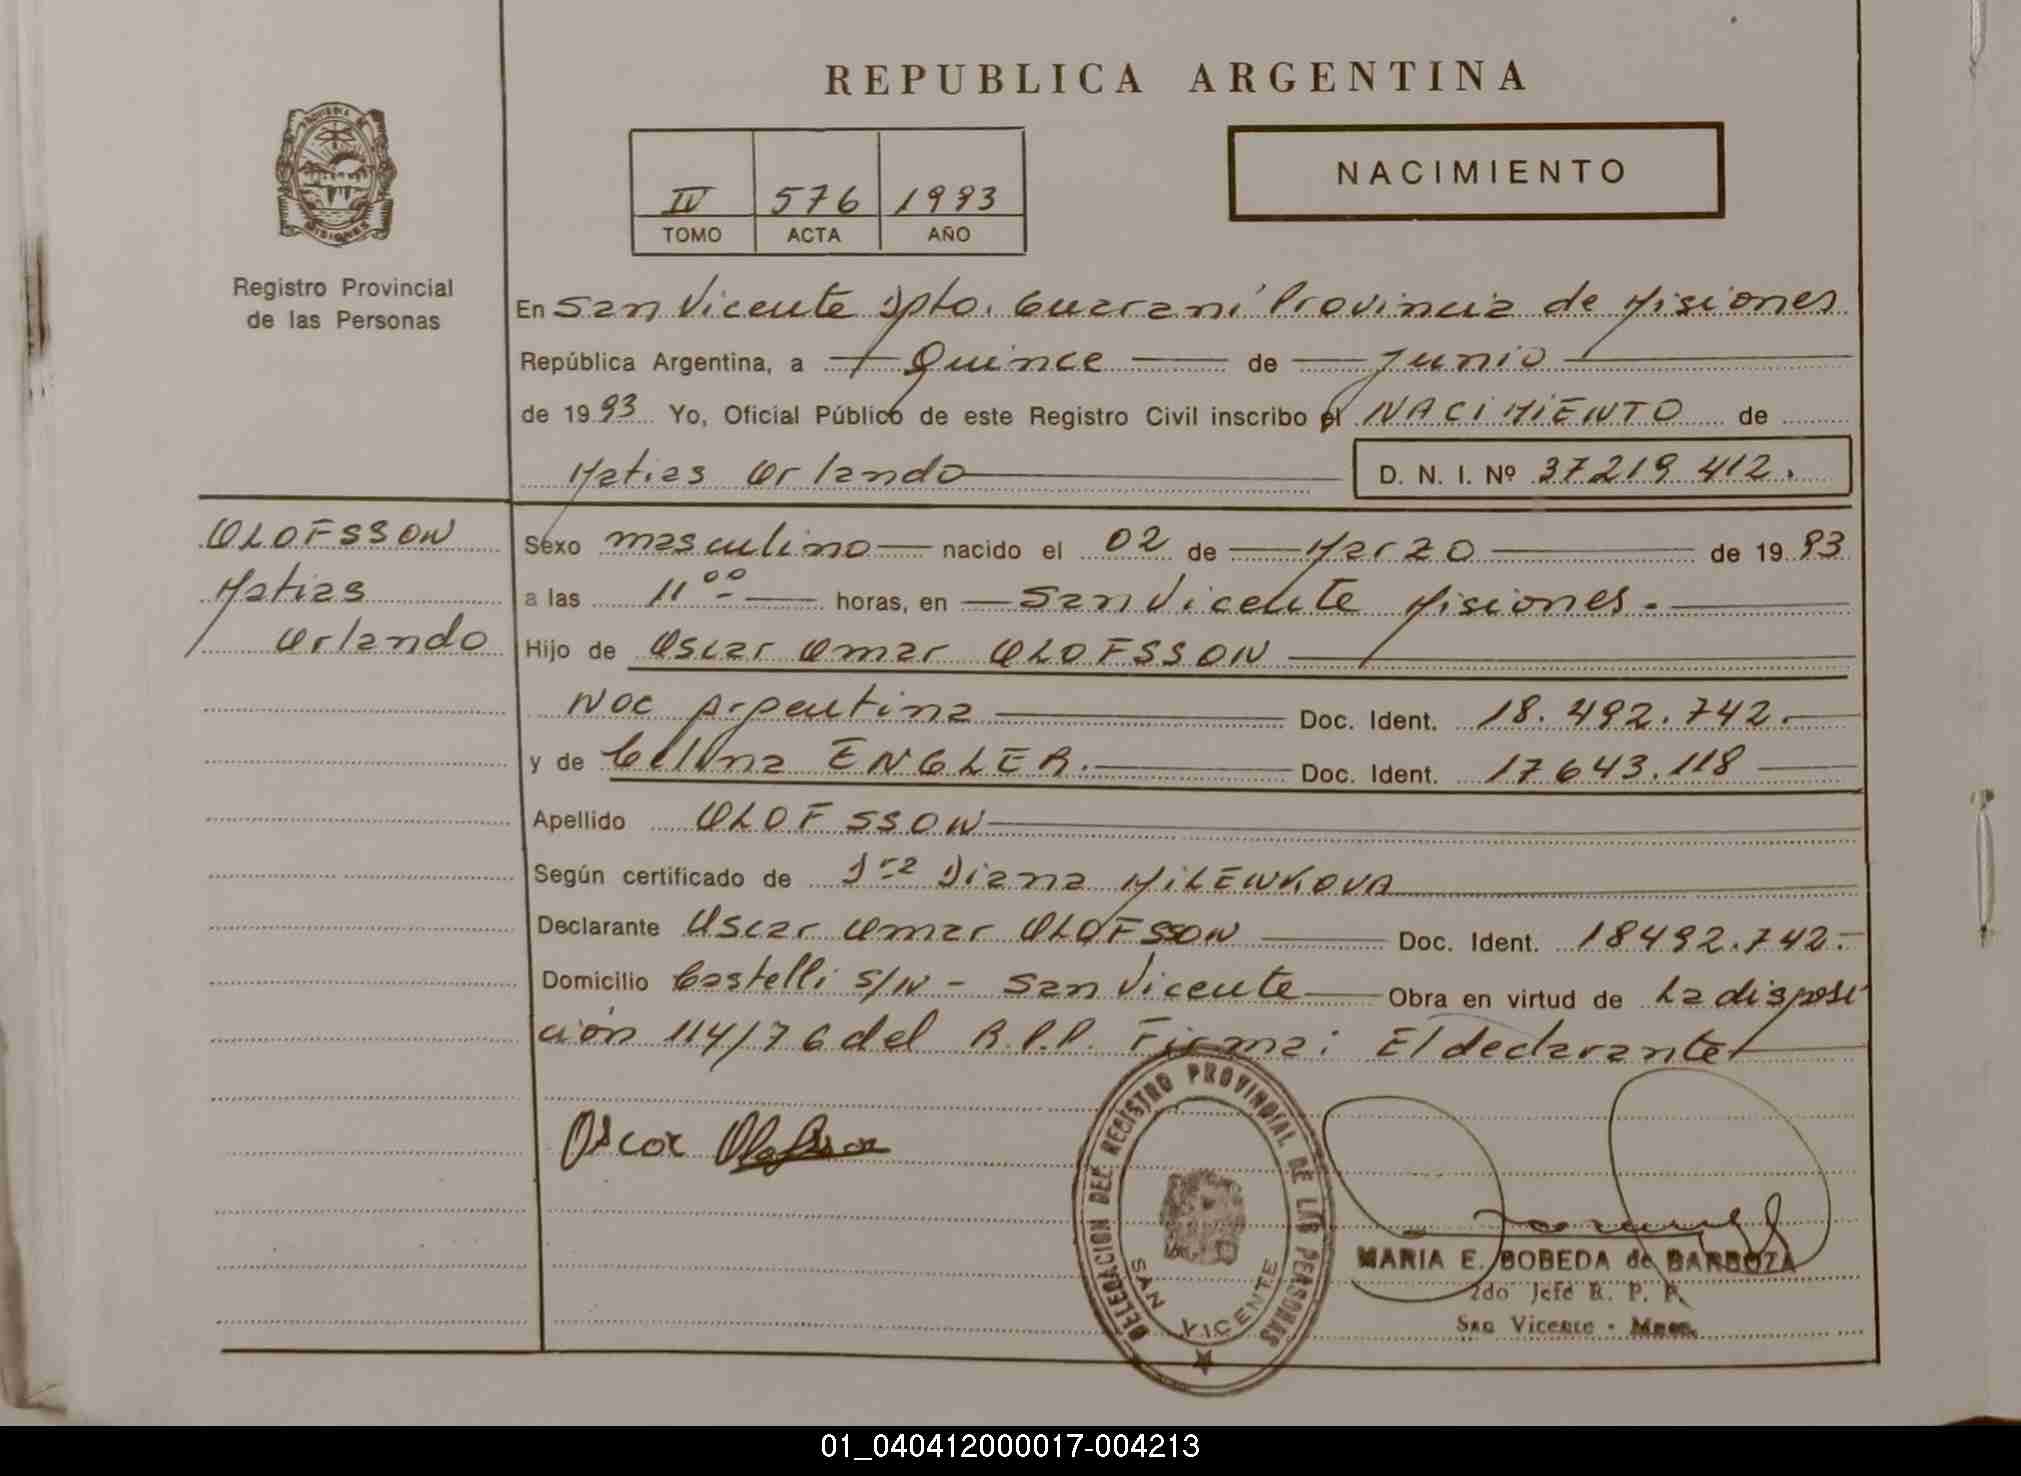 REPUBLICA ARGENTINA
NACIMIENTO
IV 576 1993
TOMO ACTA AÑO
MISIONES
Registro Provincial
de las Personas
En San Vicente Dpto. Guaraní Provincia de Misiones
República Argentina, a Quince de Junio
de 1993 Yo, Oficial Público de este Registro Civil inscribo el NACIMIENTO de
Matias Orlando D. N. I. Nº 37219412.
OLOFSSON
Matias
Orlando
Sexo masculino nacido el 02 de Marzo de 1993
a las 11 00 horas, en San Vicente Misiones.
Hijo de Oscar Omar OLOFSSON
Nac Argentina Doc. Ident. 18.492.742.
y de Celina ENGLER. Doc. Ident. 17643.118
Apellido OLOFSSON
Según certificado de Dra Diana MILENKOVA
Declarante Oscar Omar OLOFSSON Doc. Ident. 18492.742.
Domicilio Castelli S/N - San Vicente Obra en virtud de La disposi
ción 114/76 del R.P.P. Firma: El declarante
Oscar Olofsson
DELEGACION DEL REGISTRO PROVINCIAL DE LAS PERSONAS
SAN VICENTE
MARIA E. BOBEDA de BARBOZA
2do Jefe R. P. P.
San Vicente - Mnes.
01_040412000017-004213